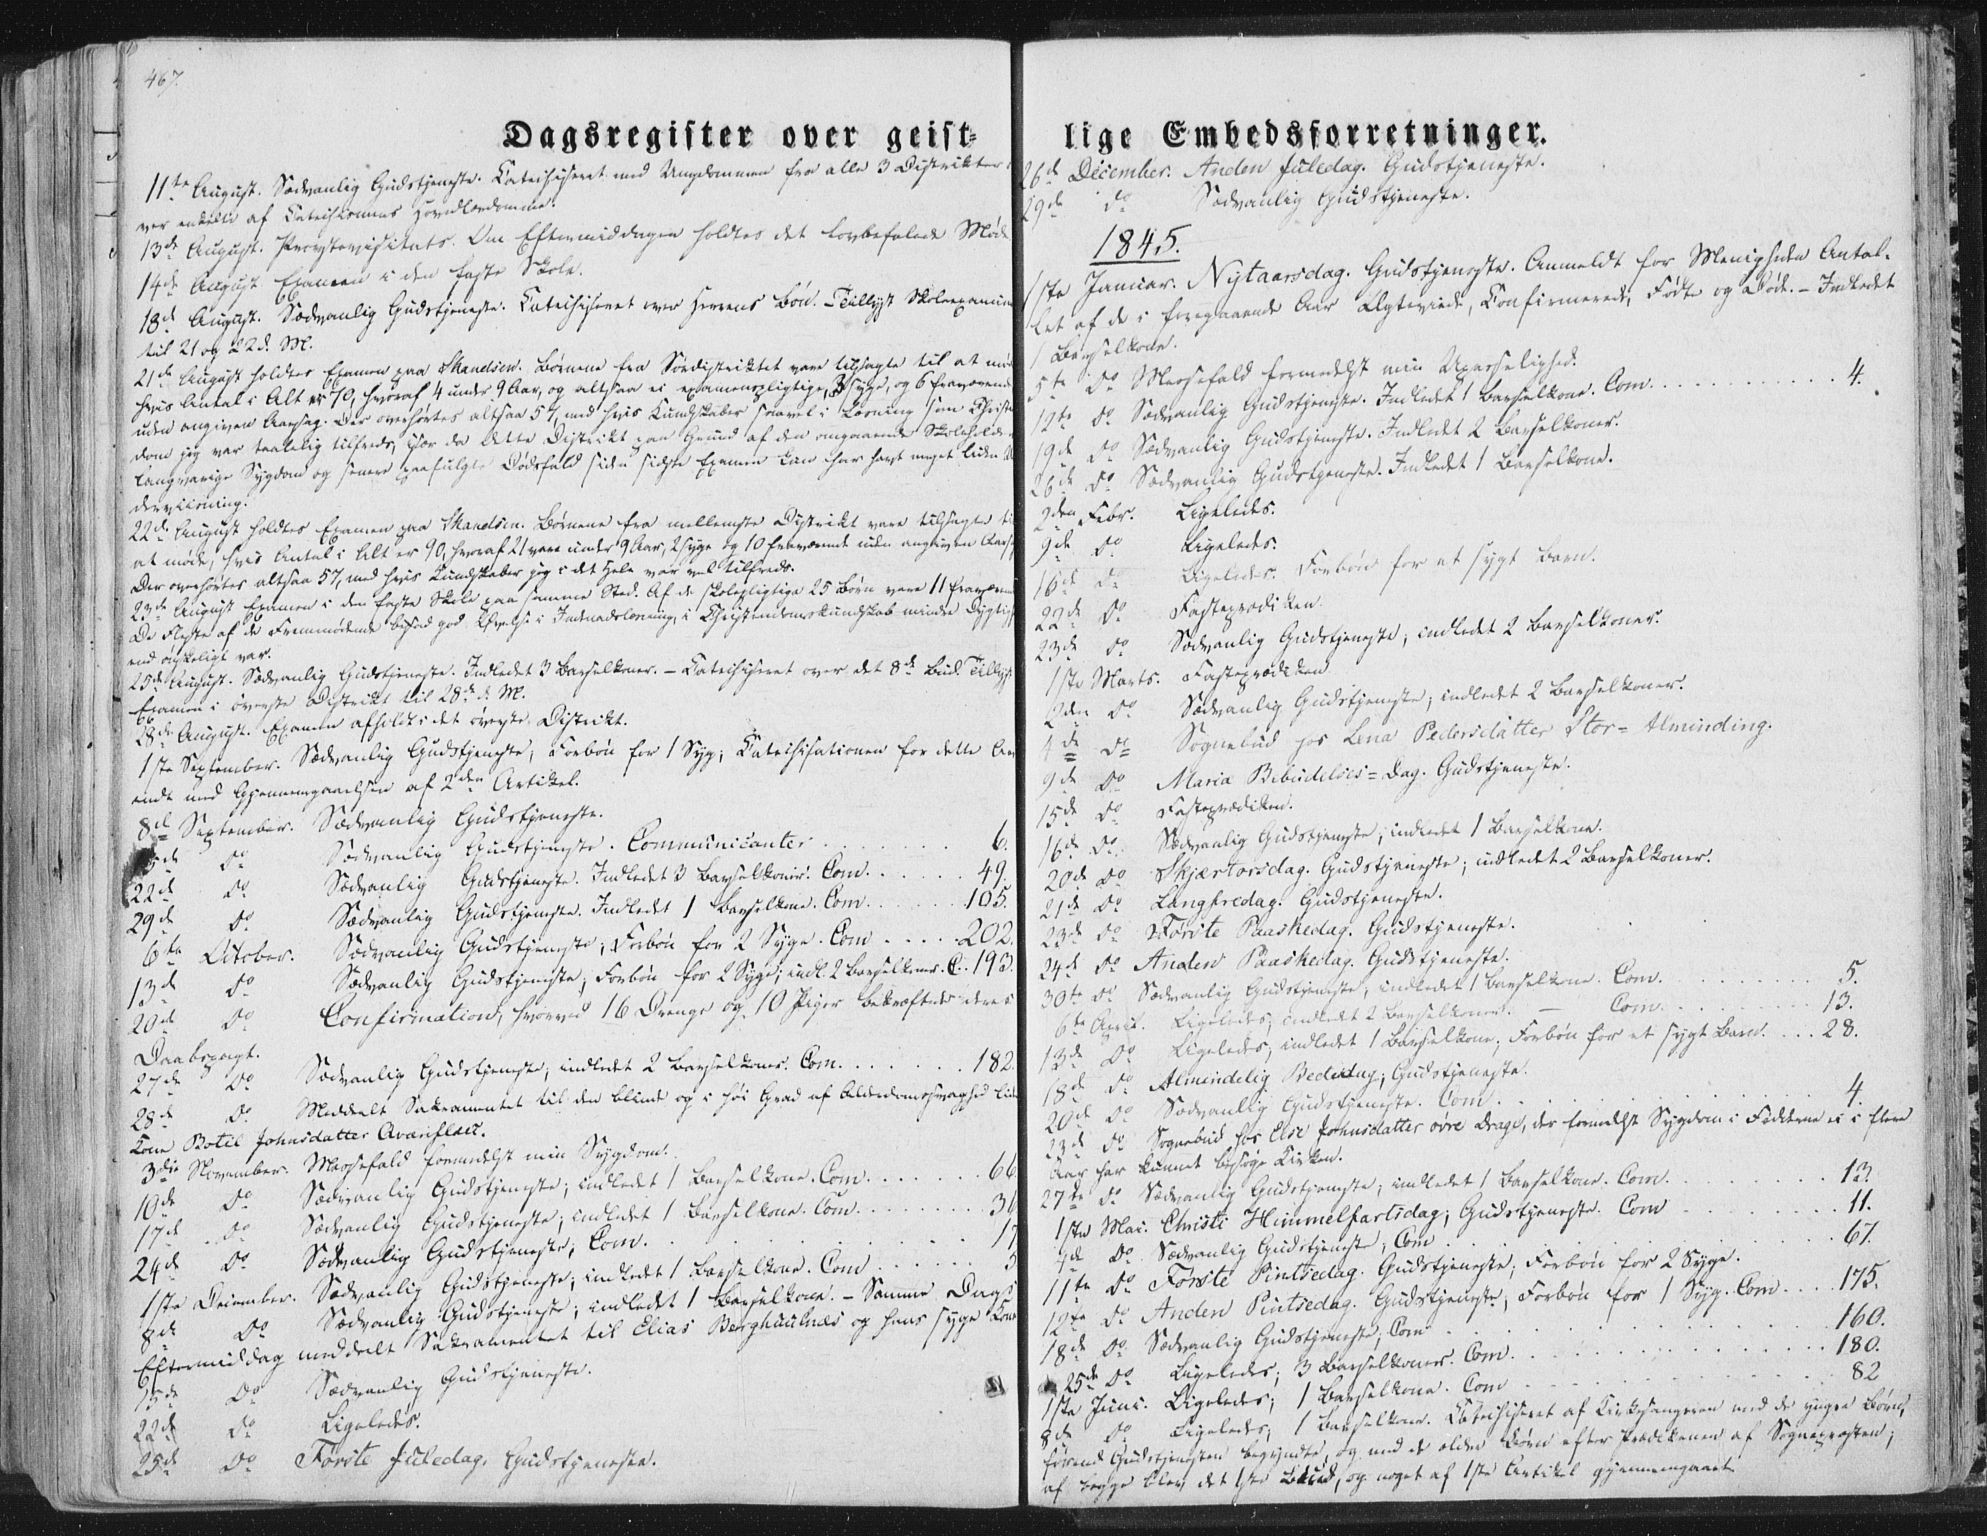 467.
Dagsregister over geist-
11te August. Sædvanlig Gudstjeneste. Catechiseret med Ungdommen fra alle 3 Distrikter
ver enkelte af Catechismus Hovedlærdomme.
13de August. Provstevisitats. Om Eftermiddagen holdtes det lovbefalede Møde
14de August Examen i den faste Skole.
18de August. Sædvanlig Gudstjeneste. Catechiseret over Herrens Bøn. - Tillyst Skoleexamina
til 21 og 22 d. M.
21de August holdtes Examen paa Skandsen. Børnene fra Sørdistriktet vare tilsagte til at
hvis Antal i Alt er 70, hvoraf 4 under 9 Aar, og altsaa ei examenspligtige, 3 syge, og 6 fraværende
uden angiven Aarsag. Der overhørtes altsaa 57, med hvis Kundskaber saavel i Læsning som Christen
dom jeg var taalelig tilfreds, især da dette Distrikt paa Grund af den omgaaende Skoleholders
langvarige Sygdom og senere paafulgte Dødsfald siden sidste Examen kun har havt meget liden
dervisning.
22de August holdtes Examen paa Skandsen. Børnene fra mellemste Distrikt vare tilsagte til
at møde, hvis Antal i Alt er 90, hvoraf 21 vare under 9 Aar, 2 syge og 10 fraværende uden angiven Aarsag
Der overhørtes altsaa 57, med hvis Kundskaber jeg i det Hele var vel tilfreds.
23de August Examen i den faste Skole paa samme Sted. Af de skolepligtige 25 Børn vare 11 fraværende
De Fleste af de Fremmødende besad god Øvelse i Indenadslæsning, i Christendomskundskab mindre Dygtighed
end ønskeligt var.
25de August. Sædvanlig Gudstjeneste. Indledet 3 Barselkoner. - Catechiseret over det 8de Bud. Tillyst
Examen i øverste Distrikt til 28de d. M.
28de August. Examen afholdt i det øverste Distrikt.
1ste September. Sædvanlig Gudstjeneste; Forbøn for 1 Syg; Catechisationen for dette Aar
endt med Gjennemgaaelsen af 2den Artikel.
8de September. Sædvanlig Gudstjeneste.
15de do Sædvanlig Gudstjeneste. Communicanter . . . . 6.
22de do Sædvanlig Gudstjeneste. Indledet 3 Barselkoner. Com. . . . . 49.
29de do Sædvanlig Gudstjeneste. Indledet 1 Barselkone. Com. . . . . 105.
6te October. Sædvanlig Gudstjeneste; Forbøn for 2 Syge. Com . . . . 202.
13de do Sædvanlig Gudstjeneste; Forbøn for 2 Syge; indl. 2 Barselkoner. C. . 193.
20de do Confirmation, hvorved 16 Drenge og 10 Piger bekræftede deres
Daabspagt.
27de do Sædvanlig Gudstjeneste; indledet 2 Barselkoner. Com. . . . . 182.
28de do Meddelt Sakramentet til den blinde og i høi Grad af Alderdomssvaghed
Kone Botil Johnsdatter Avenflaet.
3die November. Messefald formedelst min Sygdom.
10de do Sædvanlig Gudstjeneste; indledet 1 Barselkone. Com. . . . . 66
17de do Sædvanlig Gudstjeneste; indledet 1 Barselkone. Com. . . . . 36
24de do Sædvanlig Gudstjeneste; Com. . . . . 17
1ste December. Sædvanlig Gudstjeneste; indledet 1 Barselkone. Com . . . . 5
8de do Sædvanlig Gudstjeneste; indledet 1 Barselkone. - Samme Dags
Eftermiddag meddelt Sakramentet til Elias Berghaulnæs og hans syge Kone
15de do Sædvanlig Gudstjeneste.
22de do Ligeledes.
25de do Første Juledag. Gudstjeneste.
lige Embedsforretninger.
26de December. Anden Juledag. Gudstjeneste.
29de do Sædvanlig Gudstjeneste.
1845.
1ste Januar. Nytaarsdag. Gudstjeneste. Anmeldt for Menigheden Antal-
let af de i foregaaende Aar Ægteviede, Confirmerede, Fødte og Døde. - Indledet
1 Barselkone.
5te do Messefald formedelst min Upasselighed.
12te do Sædvanlig Gudstjeneste. Indledet 1 Barselkone. Com. . . . . 4.
19de do Sædvanlig Gudstjeneste. Indledet 2 Barselkoner.
26de do Sædvanlig Gudstjeneste. Indledet 1 Barselkone.
2den Febr. Ligeledes.
9de do Ligeledes.
16de do Ligeledes. Forbøn for et sygt Barn.
22de do Fasteprædiken.
23de do Sædvanlig Gudstjeneste; indledet 2 Barselkoner.
1ste Marts. Fasteprædiken
2den do Sædvanlig Gudstjeneste; indledet 2 Barselkoner.
4de do Sognebud hos Lena Pedersdatter Stor-Alminding.
9de do Mariæ Bebudelses-Dag. Gudstjeneste.
15de do Fasteprædiken.
16de do Sædvanlig Gudstjeneste; indledet 1 Barselkone.
20de do Skjærtorsdag. Gudstjeneste; indledet 2 Barselkoner.
21de do Langfredag. Gudstjeneste.
23de do Første Paaskedag. Gudstjeneste.
24de do Anden Paaskedag. Gudstjeneste.
30te do Sædvanlig Gudstjeneste; indledet 1 Barselkone. Com. . . . . 5.
6te April. Ligeledes; indledet 2 Barselkoner. - Com. . . . . 13.
13de do Ligeledes; indledet 1 Barselkone; Forbøn for et sygt Barn. . . . 28.
18de do Almindelig Bededag; Gudstjeneste.
20de do Sædvanlig Gudstjeneste. Com. . . . . 4.
23de do Sognebud hos Else Johnsdatter øvre Drage, der formedelst Sygdom i Fødderne ei i flere
Aar har kunnet besøge Kirken.
27de do Sædvanlig Gudstjeneste; indledet 1 Barselkone. Com. . . . . 13.
1ste Mai. Christi Himmelfartsdag; Gudstjeneste. Com . . . . 11.
4de do Sædvanlig Gudstjeneste; Com . . . . 67.
11te do Første Pintsedag. Gudstjeneste; Forbøn for 2 Syge.
12te do Anden Pintsedag. Gudstjeneste; Forbøn for 1 Syg. Com . . . . 175.
18de do Sædvanlig Gudstjeneste; Com . . . . 160.
25de do Ligeledes; 3 Barselkoner. Com. . . . . 180.
1ste Juni. Ligeledes; 1 Barselkone. Com . . . . 82
8de do Ligeledes; 1 Barselkone. Catechiseret af Kirkesangeren med de yngre Børn,
førend Gudstjenesten begyndte, og med de ældre Børn efter Prædikenen af Sognepresten;
af begge blev det 1ste Bud, og noget af 1ste Artikel gjennemgaaet.